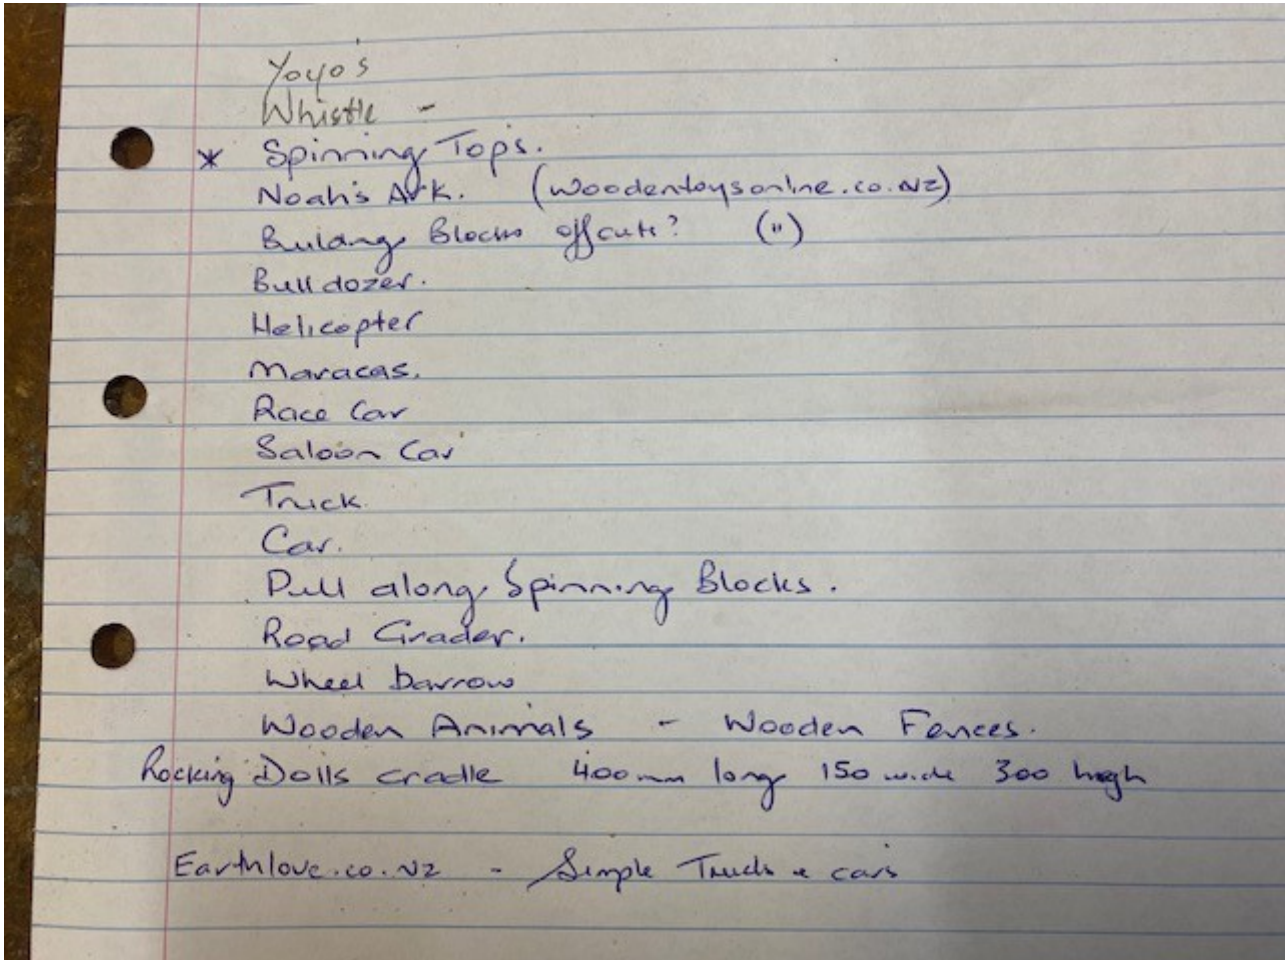 Yoyo's
Whistle -
* Spinning Tops.
Noah's Ark. (woodentoysonline.co.NZ)
Building Blocks offcuts? (")
Bulldozer.
Helicopter
Maracas.
Race Car
Saloon Car
Truck.
Car.
Pull along Spinning Blocks.
Road Grader.
Wheel barrow
Wooden Animals - Wooden Fences.
Rocking Dolls cradle 400mm long 150 wide 300 high
Earthlove.co.NZ - Simple Trucks & cars